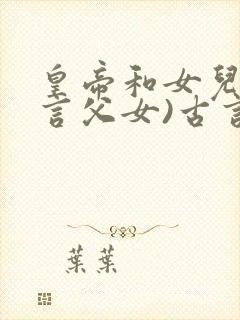 皇帝和女兒
言父女)古言
葉葉